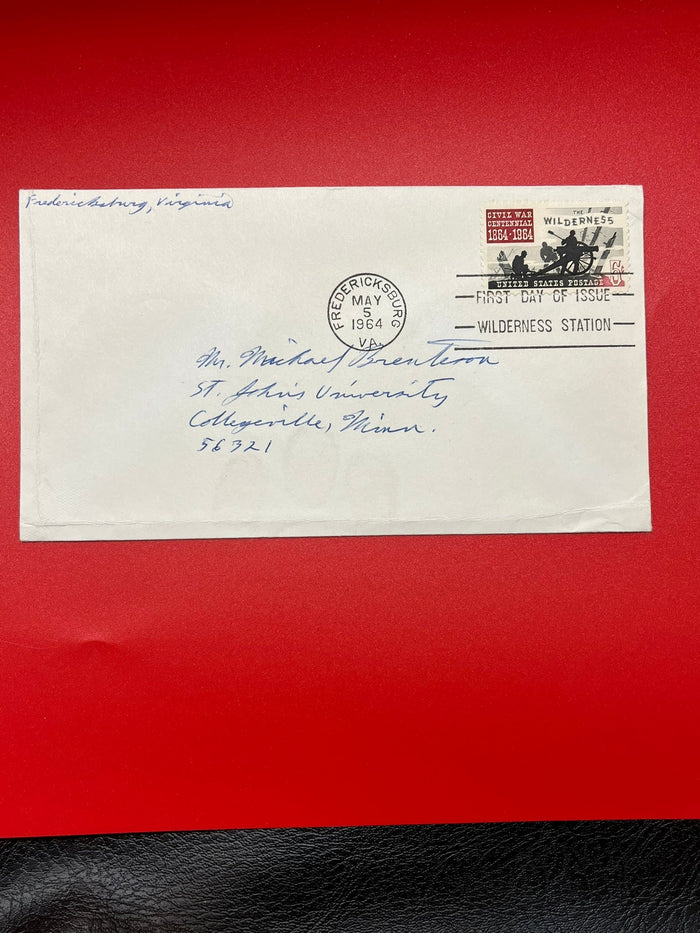 Fredericksburg, Virginia
CIVIL WAR
CENTENNIAL
1864-1964
THE
WILDERNESS
UNITED STATES POSTAGE 5¢
FREDERICKSBURG
MAY
5
1964
VA.
FIRST DAY OF ISSUE
WILDERNESS STATION
Mr. Michael Brenteson
St. John's University
Collegeville, Minn.
56321